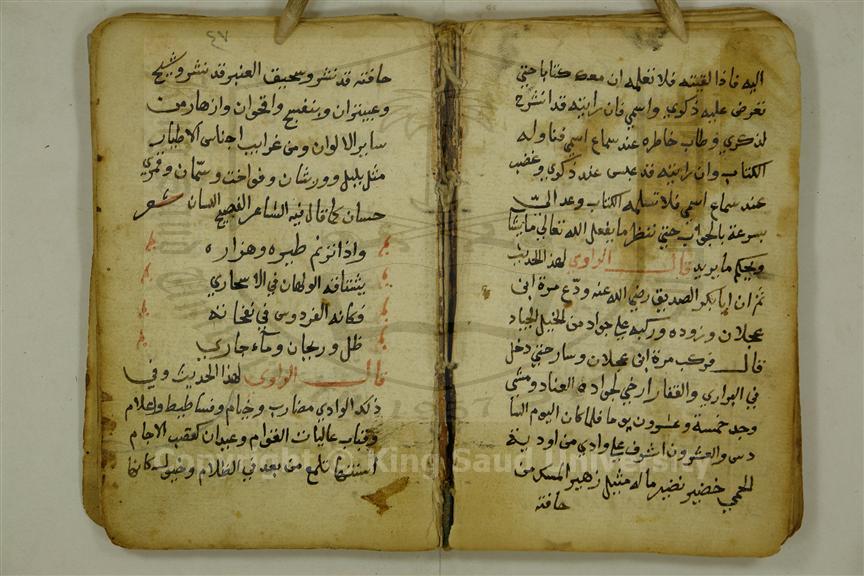 اليه فاذا لقيته فلا تعلمه ان معك كتابا حتي
تعرض عليه ذكري واسمي فان رايته قد انشرح
لذكري وطاب خاطره عند سماع اسمي فناوله
الكتاب وان رايته قد عبس عند ذكري وغضب
عند سماع اسمي فلا تسلمه الكتاب وعد الي
بسرعة بالجواب حتي ننظر ما يفعل الله تعالي ما يشا
ويحكم ما يريد قال الراوي لهذا الحديث
ثم ان ابا بكر الصديق رضي الله عنه ودع مرة ابن
عجلان وزوده وركبه علي جواد من الخيل الجياد
قال فركب مرة ابن عجلان وسار حتي دخل
في البراري والقفار ارخي لجواده العناد ومشي
وجد خمسة وعشرون يوما فلما كان اليوم السا
دس والعشرون اشرف علي وادي من اودية
الحمي خضير نضير ماله مثيل زهير المسك من
حافته
٤٧
حافته قد نشر وسحيق العنبر قد نشر وشيح
وعبيتران وبنفسج واقحوان وازهار من
ساير الالوان ومن غرايب اجناس الاطيار
مثل بلبل وورشان وفواخت وسمان وقمري
حسان كما قال فيه الشاعر الفصيح اللسان شعر
واذا ترنم طيره وهزاره
يشتاقه الولهان في الاسحاري
فكانه الفردوس في نفحاته
ظل وريحان وماء جاري
قال الراوي لهذا الحديث وفي
ذلك الوادي مضارب وخيام وفساطيط واعلام
وقباب عاليات القوام وعيدان كعقب الاجام
اسنتها تلمع من بعد في الظلام وخيول كانها
Copyright © King Saud University
1957